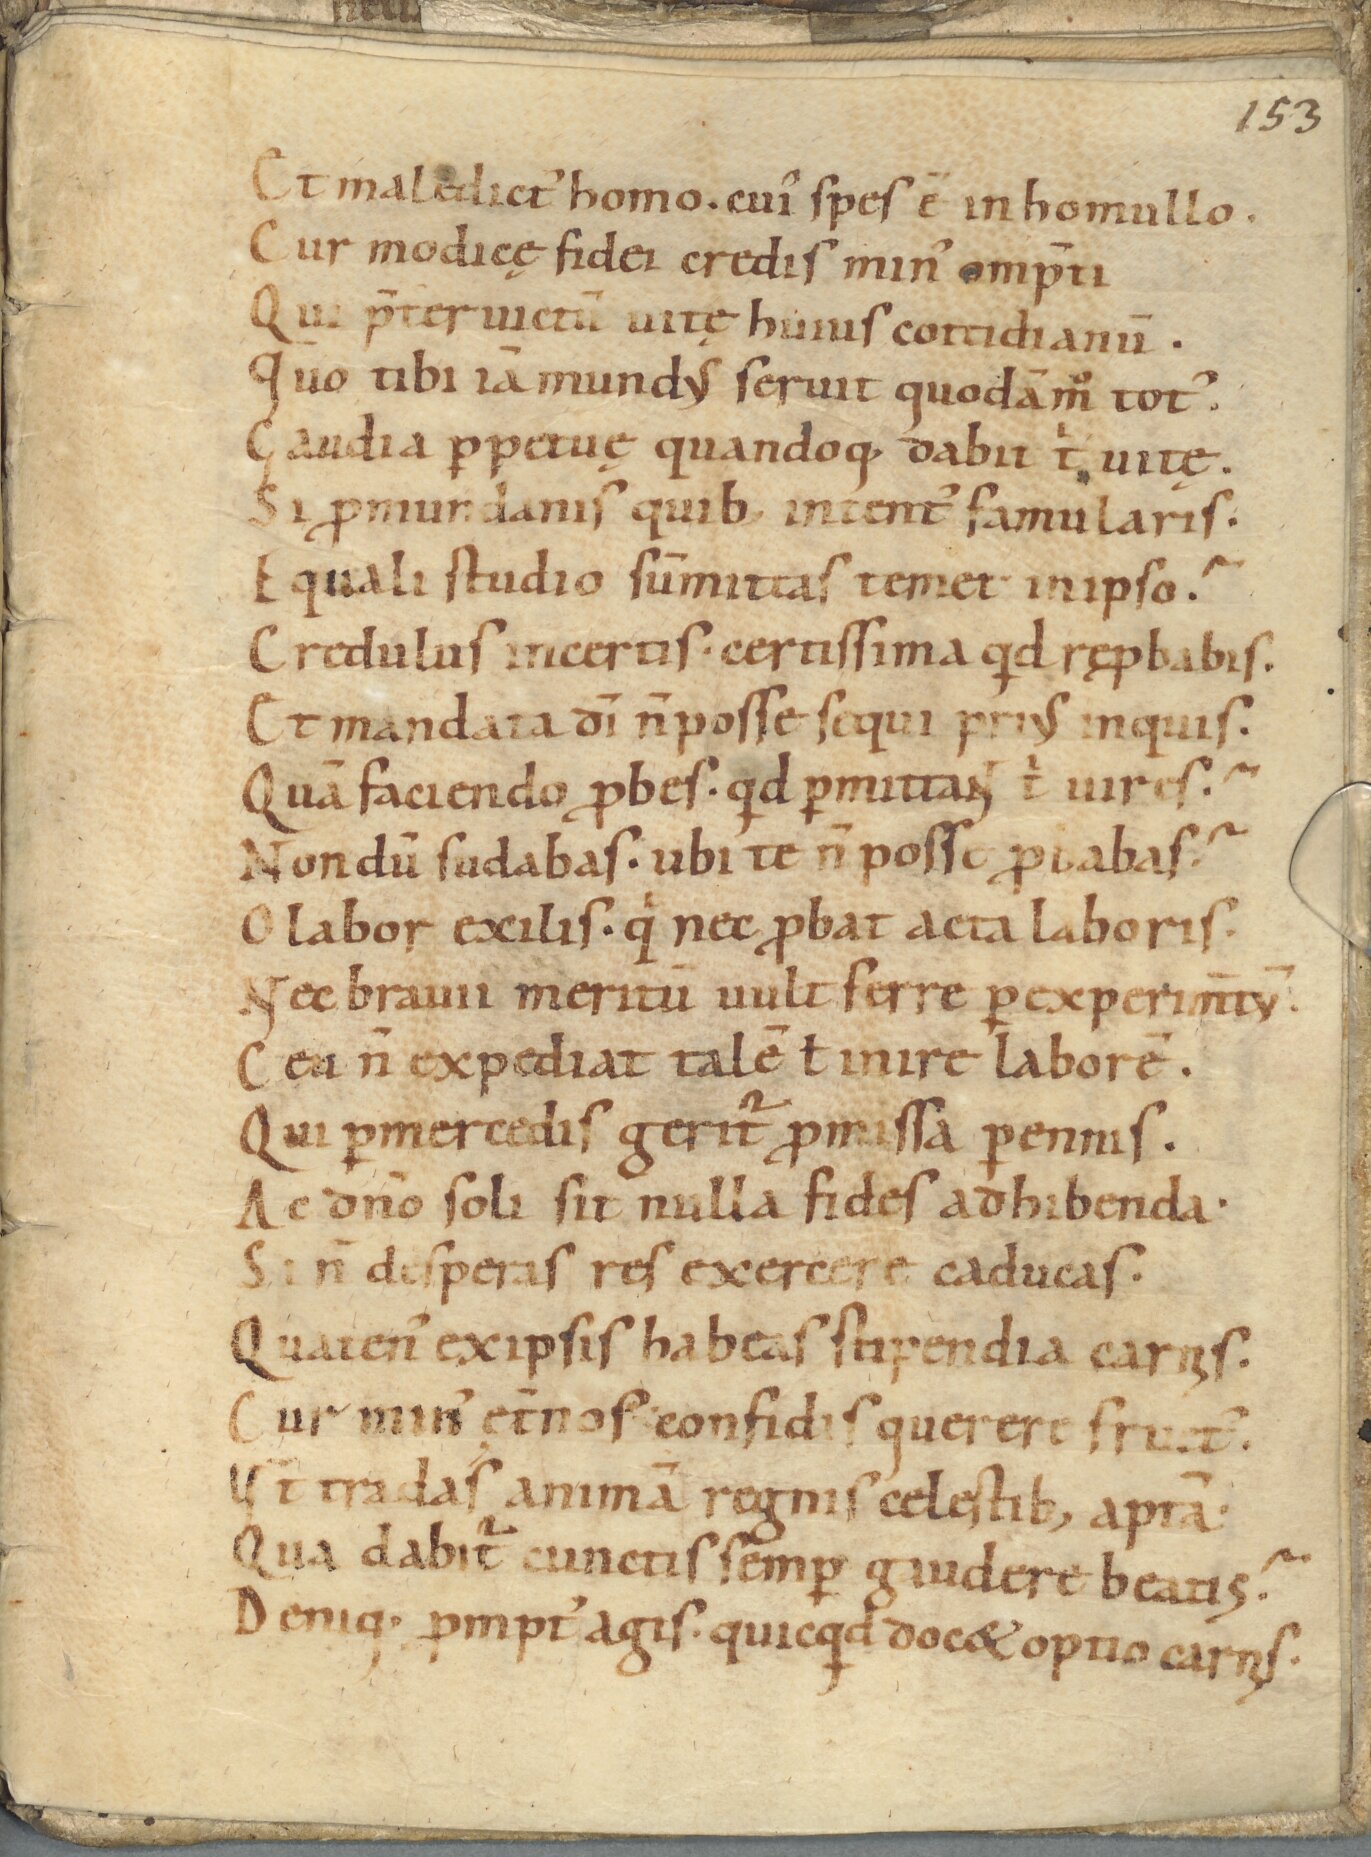 153
Et maledict᾽ homo. cuı᾽ spes ē in homullo.
Cur modicę fidei credis min᾽ omp̄ti
Qui p̄ter uictū uitę huius cottidianū.
Quo tibi iā mundus seruit quodām̊ tot᾽.
Gaudia ꝑpetuę quandoq; dabit t̍ uitę.
Si ꝓmundanis quib; intent᾽ famularis.
Equali studio sūmittas temet in ipso.
Credulus incertis. certissima qd ręꝓbabis.
Et mandata dī n̄ posse sequi prius inquis.
Quā faciendo ꝓbes. qd ꝑmittant t̍ uires.
Nondū sudabas. ubi te n̄ posse ꝓbabas.
O labor exilis. q̍ nec ꝓbat acta laboris.
Nec brauii meritū uult ferre ꝑ experim̄tū.
Ceu n̄ expediat talē ł inire laborē.
Qui ꝑmercedis gerit᷑ ꝓmissa ꝑennis.
Ac dn̄o soli sit nulla fides adhibenda.
Si n̄ desperas res exercere caducas.
Quaten᾽ ex ipsis habeas stipendia carnis.
Cur min᾽ ęt̄nos confidis querere fruct᾽.
Ut tradas animā regnis celestib; aptā.
Qua dabit᷑ cunctis semꝑ gaudere beatis.
Deniq; ꝓmpt᾽ agis. quicqd doc& optio carnis.